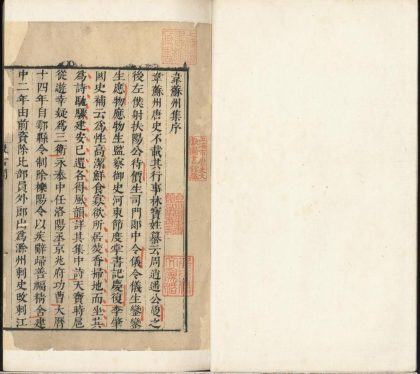 韋蘇州集序
韋蘇州唐史不載其行事林寶姓纂云周逍遙公夐之
後左僕射扶陽公待價生司門郎中令儀令儀生鑾鑾
生應物應物生監察御史河東節度掌書記慶復李肇
國史補云爲性高潔鮮食寡欲所居焚香掃地而坐其
爲詩馳驟建安已還各得風韻詳其集中詩天寶時扈
從遊幸疑爲三衛永泰中任洛陽丞京兆府功曹大曆
十四年自鄠縣令制除櫟陽令以疾辭歸善福精舍建
中二年由前資除比部員外郎出爲滁州刺史改刺江